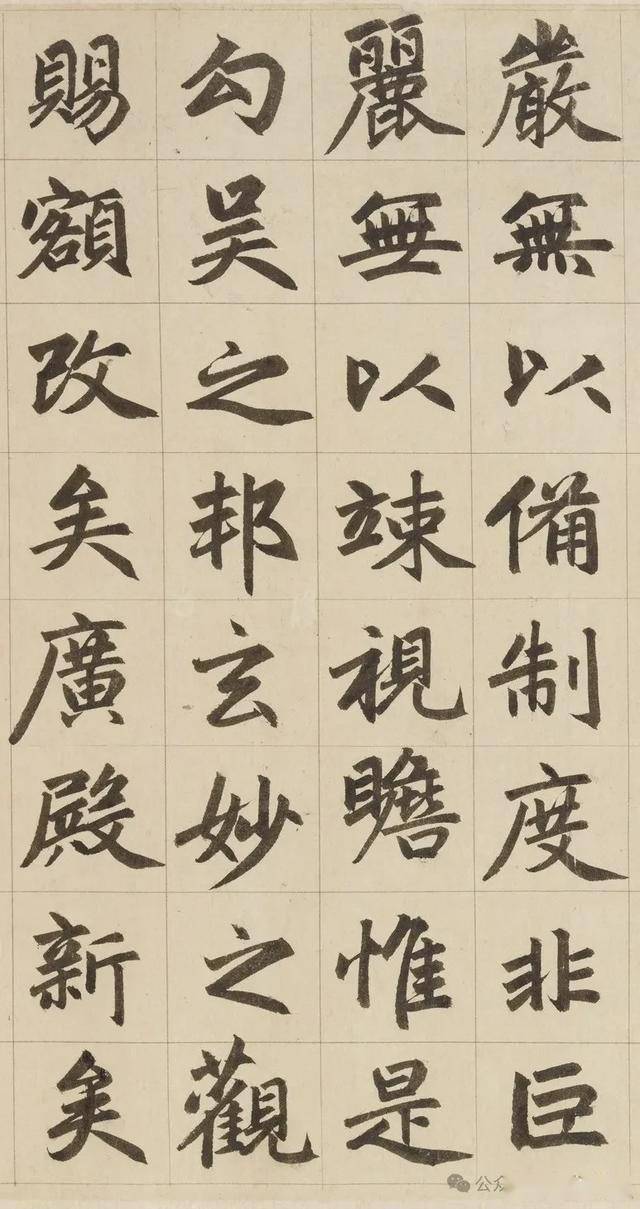 嚴無以備制度非巨
麗無以竦視瞻惟是
勾吴之邦玄妙之觀
賜額改矣廣殿新矣
公众